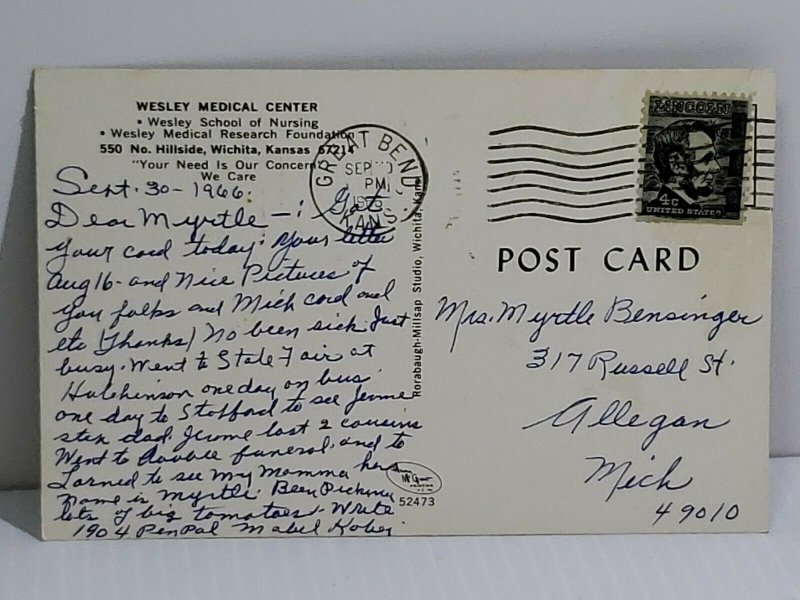 WESLEY MEDICAL CENTER
• Wesley School of Nursing
• Wesley Medical Research Foundation
550 No. Hillside, Wichita, Kansas 67214
"Your Need Is Our Concern"
We Care
GREAT BEND
SEP 30
PM
KANS.
LINCOLN
4c
UNITED STATES
Sept. 30 - 1966.
Dear Myrtle - i Got
your card today. Your letter
Aug 16 - and Nice Pictures of
you folks and Mich card and
etc (Thanks) No been sick. Just
busy. Went to State Fair at
Hutchinson one day on bus
one day to Stafford to see Jerome
step dad. Jerome lost 2 cousins
Went to funeral. and to
Larned to see My Momma her
name is Myrtle. Been Picking
lots of big tomatoes. Write
1904 PenPal Mabel
Rorabaugh-Millsap Studio, Wichita, Kans.
52473
POST CARD
Mrs. Myrtle Bensinger
317 Russell St.
Allegan
Mich
49010